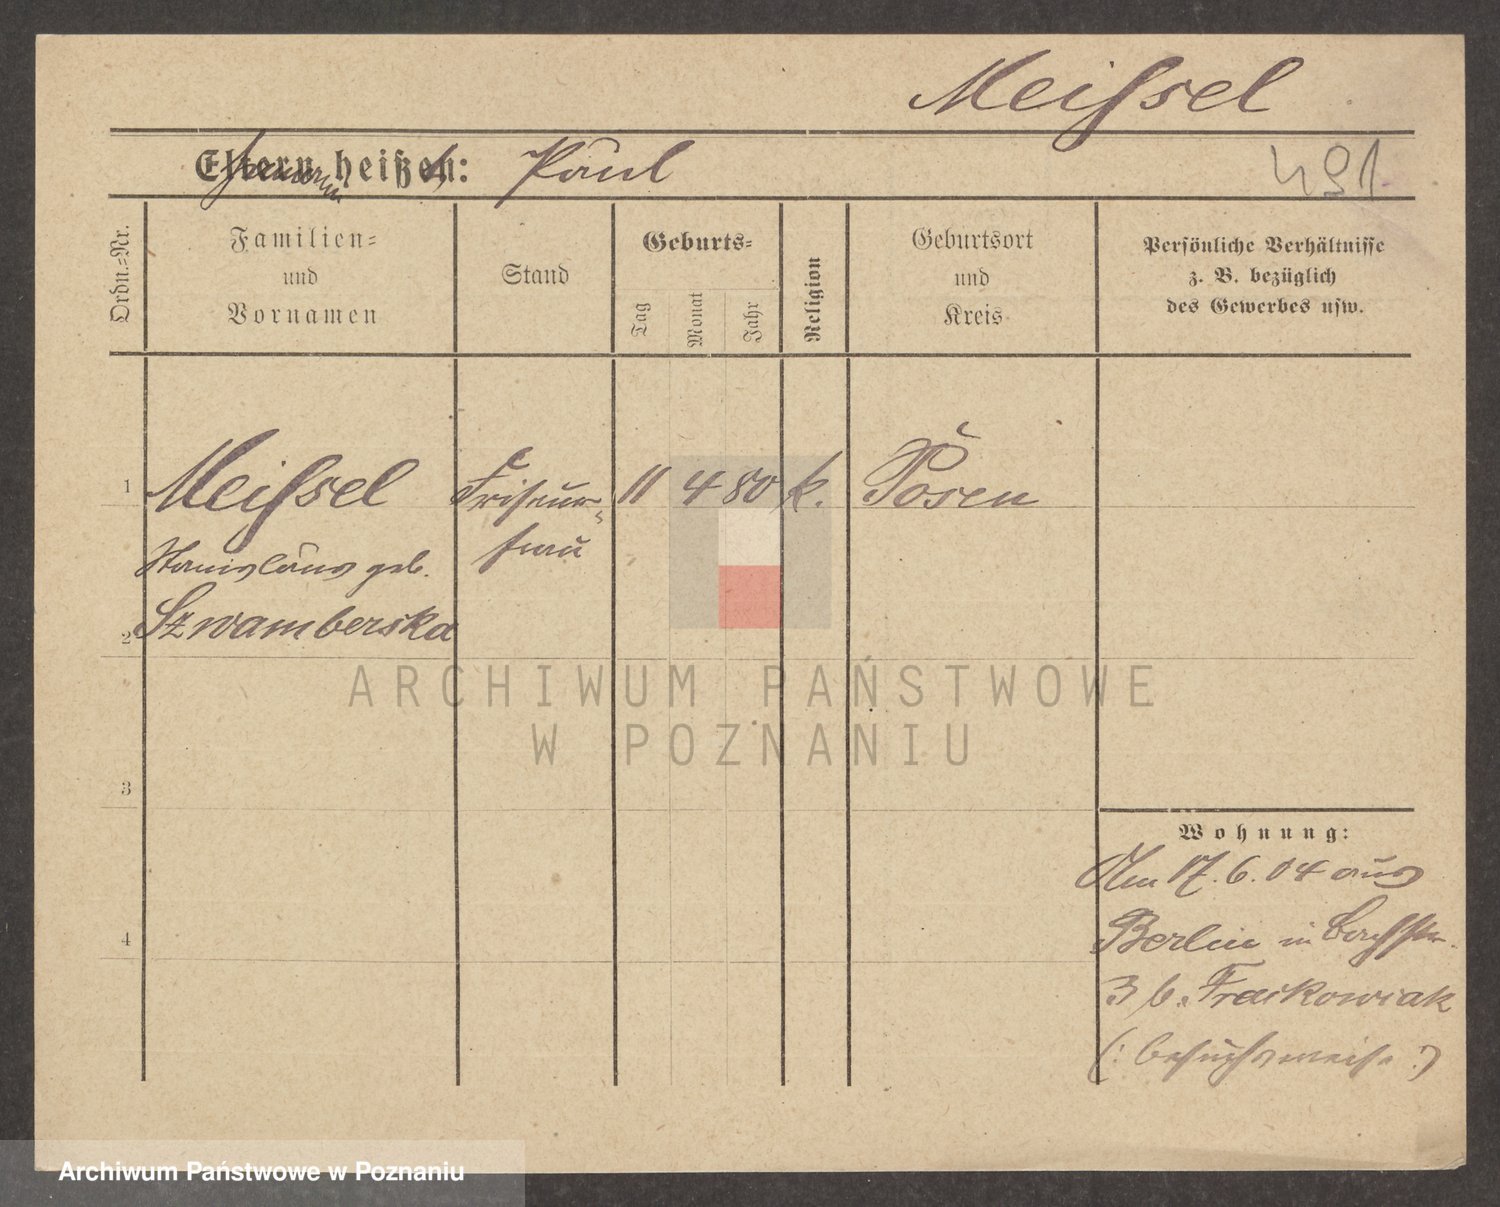 Meißsel
Eltern heißen: Paul
491
Ordn.-Nr.
Familien-
und
Vornamen
Stand
Geburts-
Tag
Monat
Jahr
Religion
Geburtsort
und
Kreis
Persönliche Verhältnisse
z. B. bezüglich
des Gewerbes usw.
1
Meißsel
Friseur-
frau
11 4 80 k. Posen
Stanislaus geb.
2
Szwamberska
ARCHIWUM PAŃSTWOWE
W POZNANIU
3
Wohnung:
Am 17.6.04 aus
4
Berlin in Bachstr.
3 b. Frackowiak
(: besuchsweise :)
Archiwum Państwowe w Poznaniu